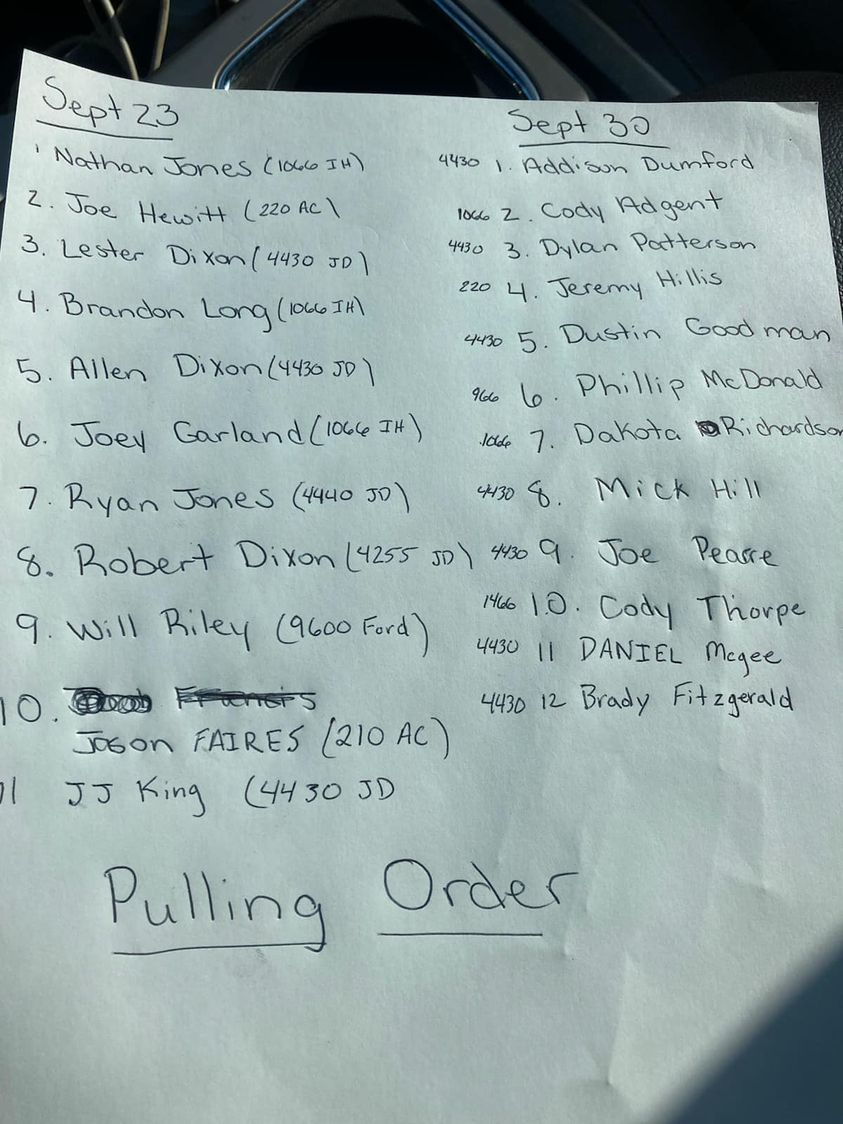 Sept 23
1 Nathan Jones (1066 IH)
2. Joe Hewitt (220 AC)
3. Lester Dixon (4430 JD)
4. Brandon Long (1066 IH)
5. Allen Dixon (4430 JD)
6. Joey Garland (1066 IH)
7. Ryan Jones (4440 JD)
8. Robert Dixon (4255 JD)
9. Will Riley (9600 Ford)
10. Francis
Jason FAIRES (210 AC)
11 JJ King (4430 JD
Sept 30
4430 1. Addison Dumford
1066 2. Cody Adgent
4430 3. Dylan Patterson
220 4. Jeremy Hillis
4430 5. Dustin Goodman
966 6. Phillip McDonald
1066 7. Dakota Richardson
4430 8. Mick Hill
4430 9. Joe Pearre
1466 10. Cody Thorpe
4430 11 DANIEL Mcgee
4430 12 Brady Fitzgerald
Pulling Order